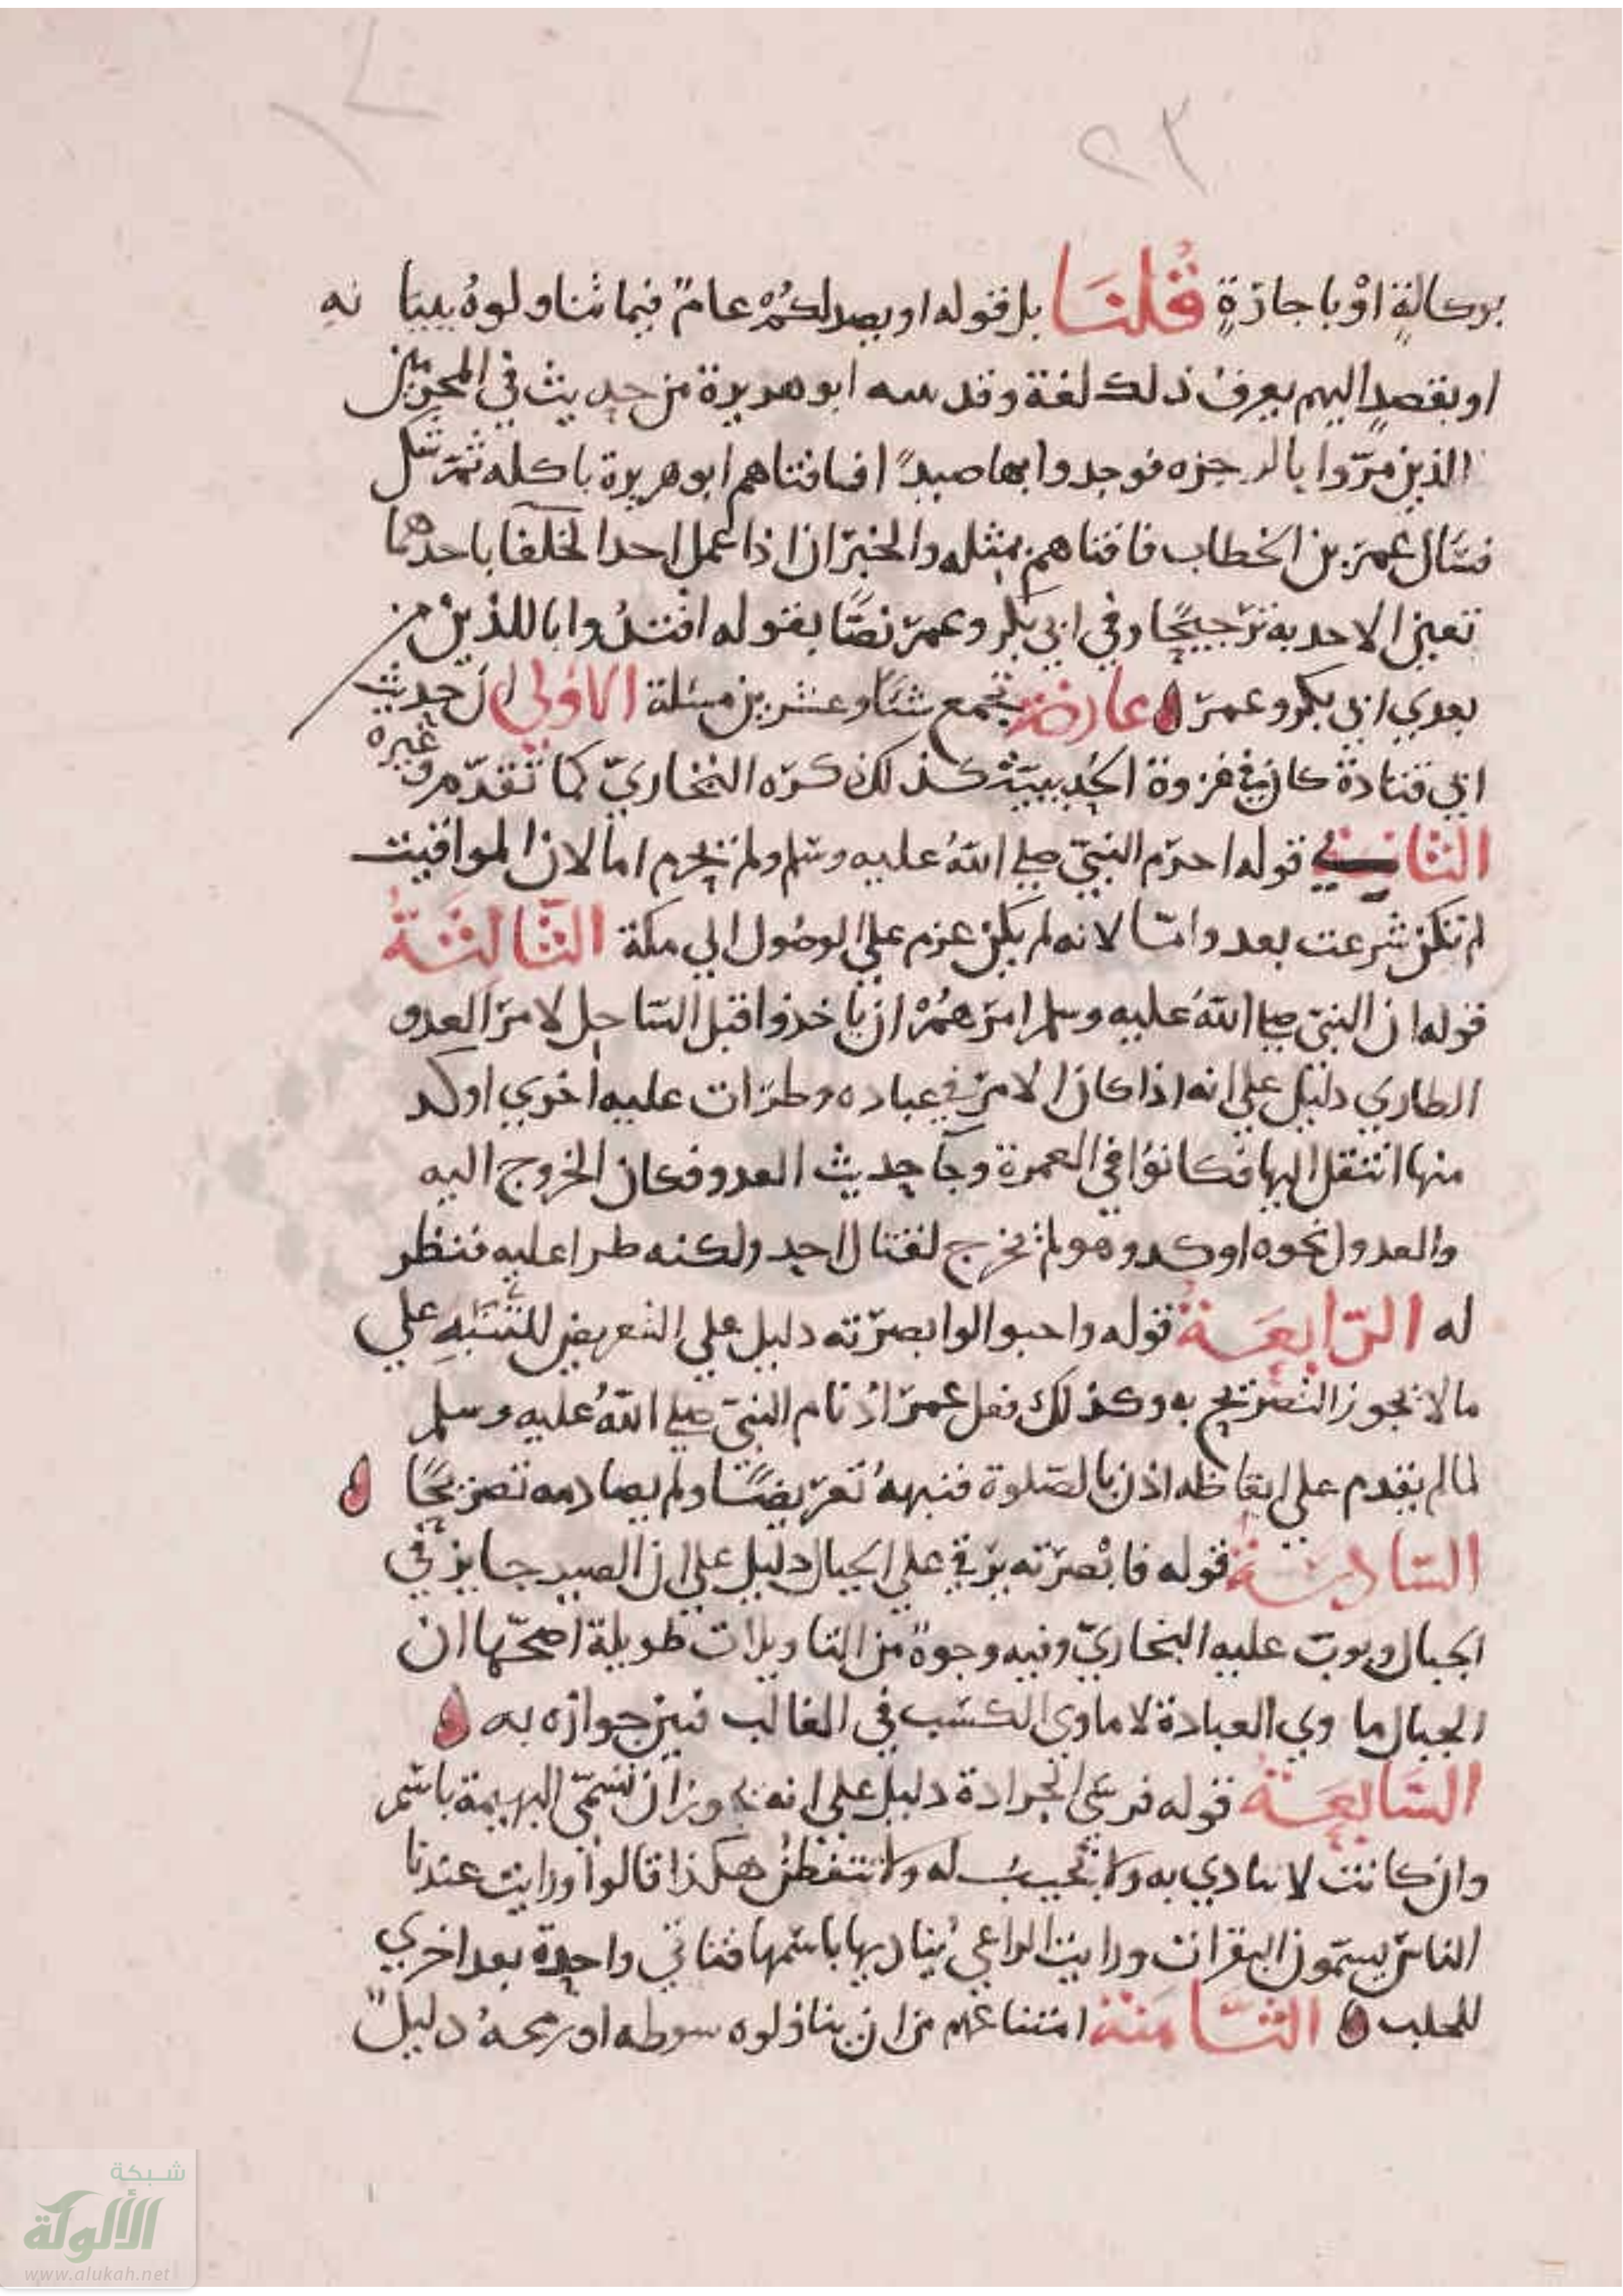 بوكالةٍ اوْ باجازةٍ قُلنَا بل قوله او يصد لكُمْ عامٌ فيما تناولوهُ بيبا نه
او بقصدٍ اليهم يعرف ذلك لغة وقد سه ابو هريرة من حديث في المحرمين
الذين مرّوا بالرجزه فوجدوا بها صيدً افافتاهم ابو هريرة باكله ثمّ شكل
فسَال عمرَ بن الخطاب فافتاهم بمثله والخبرَان اذا عمل احد الخلفا باحدهما
تعين الاحد به ترجيحًا وفي ابي بكر وعمرَ نصًّا بقوله اقتدُوا باللذين من
بعدي ابي بكر وعمرَ عارضة تجمع ستًا وعشرين مسئلة الاولي ان حديث
ابي قتادة كان في غزوة الحُديبيّة كذلك كرّه البخاريّ كما تقدّم وغيره
الثاني قوله احرَم النبيّ صلي اللهُ عليه وسَلم ولم يحرم اما لان المواقيت
لم تكن شرعت بعد وامّا لانه لم يكن عزم علي الوصُول الي مكة الثالثَةُ
قوله ان النبيّ صلي اللهُ عليه وسلم امرَهُمْ ان ياخذوا قبل السّاحل لامرَ العدو
الطاري دليل علي انه اذا كان الامرَ في عباده وطرَات عليه اخري اوكد
منها انتقل اليها فكانوُا في العمرة وجآ حديث العدو فعان الخروج اليه
والعدول نحوه اوكد وهو لم يخرج لقتال احد ولكنه طرا عليه فنظر
له الرّابعَةُ قوله واحبوا لوا بصرَته دليل علي التعريض للتنبيه علي
ما لا يجوز التصرَيح به وكذلك فعل عمرَ اذْ نام النبيّ صلي اللهُ عليه وسلم
لما لم يقدم علي ايقاظه اذن بالصّلوة فنبههُ تعرَيضًا ولم يصادمه تصرَيحًا
السّادسَة قوله فابْصرَته يرَقي علي الجبال دليل علي ان الصيد جايز في
الجبال وبوبَ عليه البخاريّ وفيه وجوهٌ من التاويلات طويلة اصحّها ان
الجبال ماوي العبادة لا ماوي الكسَب في الغالب فبين جوازه به
السّابعَة قوله فرسَي الجرادة دليل علي انه يجوز ان تسَمّي البهيمة باسَم
وان كانت لا تنادي به ولا تجيبُ له ولا تتفطنُ هكذا قالوا ورايت عندنا
الناسَ يسمّون البقرات ورايت الراعي يُناديها باسمها فتاتي واحدة بعد اخري
للحلب الثّامنة امتناعهم من ان يناوُلوه سوطه او رمحهُ دليلٌ
شبكة
الألوكة
www.alukah.net